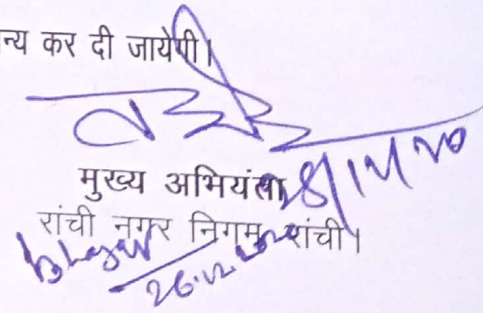 न्य कर दी जायेगी।
28/12/20
मुख्य अभियंता
रांची नगर निगम, रांची।
26.12.2020